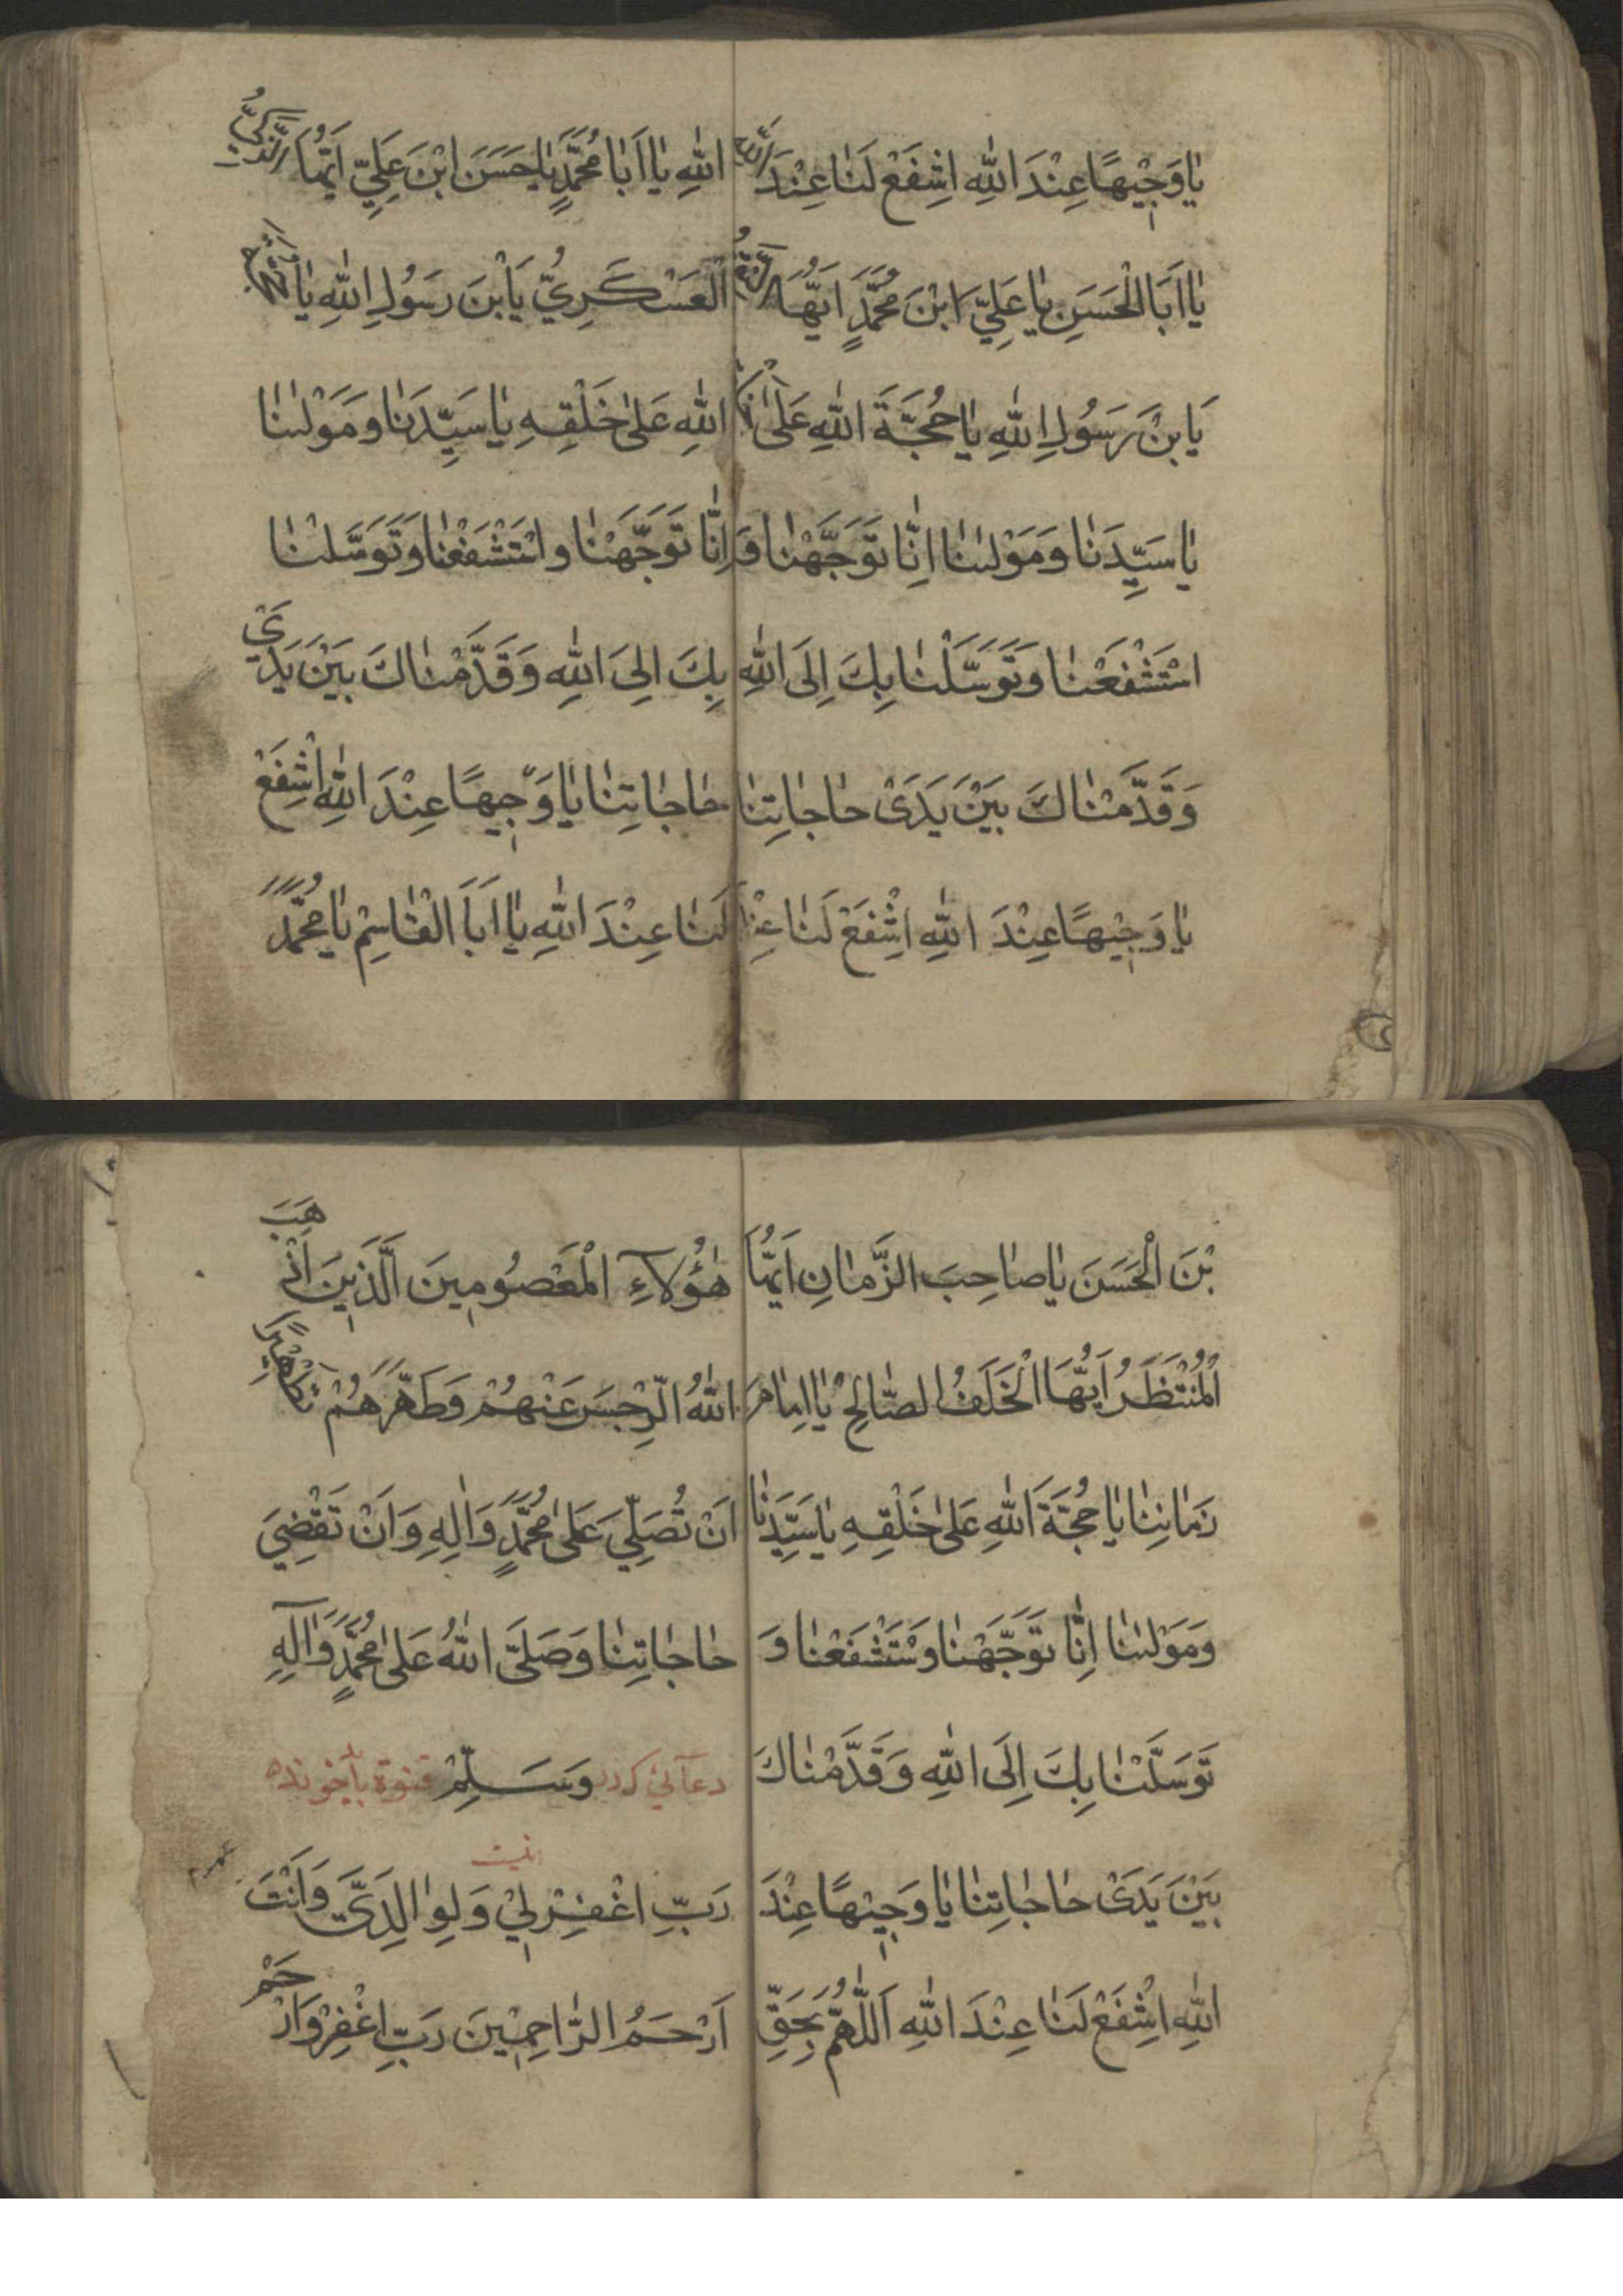 يٰا وَجٖيْهًا عِنْدَ اللّٰهِ اشْفَعْ لَنٰا عِنْدَ
يٰا اَبَا الْحَسَنِ يٰا عَلِيَّ ابْنَ مُحَمَّدٍ اَيُّهَا
يَا بْنَ رَسُولِ اللّٰهِ يٰا حُجَّةَ اللّٰهِ عَلٰى
يٰا سَيِّدَنٰا وَمَوْلٰينٰا اِنّٰا تَوَجَّهْنٰا وَ
اسْتَشْفَعْنٰا وَتَوَسَّلْنٰا بِكَ اِلَى اللّٰهِ
وَقَدَّمْنٰاكَ بَيْنَ يَدَىْ حٰاجٰاتِنٰا
يٰا وَجٖيْهًا عِنْدَ اللّٰهِ اشْفَعْ لَنٰا
اللّٰهِ يٰا اَبٰا مُحَمَّدٍ يٰا حَسَنَ ابْنَ عَلِيٍّ اَيُّهَا الزَّكِيُّ
الْعَسْكَرِيُّ يَا بْنَ رَسُولِ اللّٰهِ يٰا
اللّٰهِ عَلٰى خَلْقِهِ يٰا سَيِّدَنٰا وَمَوْلٰينٰا
اِنّٰا تَوَجَّهْنٰا وَاسْتَشْفَعْنٰا وَتَوَسَّلْنٰا
بِكَ اِلىَ اللّٰهِ وَقَدَّمْنٰاكَ بَيْنَ يَدَيْ
حٰاجٰاتِنٰا يٰا وَجٖيهًا عِنْدَ اللّٰهِ اشْفَعْ
لَنٰا عِنْدَ اللّٰهِ يٰا اَبَا الْقٰاسِمِ يٰا مُحَمَّدَ
بْنَ الْحَسَنَ يٰا صٰاحِبَ الزَّمٰانِ اَيُّهَا
الْمُنْتَظَرُ اَيُّهَا الْخَلَفُ الصّٰالِحُ يٰا اِمٰامَ
زَمٰانِنٰا يٰا حُجَّةَ اللّٰهِ عَلٰى خَلْقِهِ يٰا سَيِّدَنٰا
وَمَوْلٰينٰا اِنّٰا تَوَجَّهْنٰا وَسْتَشْفَعْنٰا وَ
تَوَسَّلْنٰا بِكَ اِلَى اللّٰهِ وَقَدَّمْنٰاكَ
بَيْنَ يَدَىْ حٰاجٰاتِنٰا يٰا وَجٖيْهًا عِنْدَ
اللّٰهِ اشْفَعْ لَنٰا عِنْدَ اللّٰهِ اَللّٰهُمَّ بِحَقِّ
هٰؤُلآءِ الْمَعْصُومٖينَ الَّذٖينَ اَذْهَبَ
اللّٰهُ الرِّجْسَ عَنْهُمْ وَطَهَّرَهُمْ تَطْهٖيرًا
اَنْ تُصَلِّيَ عَلٰى مُحَمَّدٍ وَاٰلِهِ وَاَنْ تَقْضِيَ
حٰاجٰاتِنٰا وَصَلَّى اللّٰهُ عَلٰى مُحَمَّدٍ وَاٰلِهِ
وَسَلِّمْ
رَبِّ اغْفِرْلٖيْ وَلِوٰالِدَيَّ وَاَنْتَ
اَرْحَمُ الرّٰاحِمٖيْنَ رَبِّ اغْفِرْ وَارْحَمْ